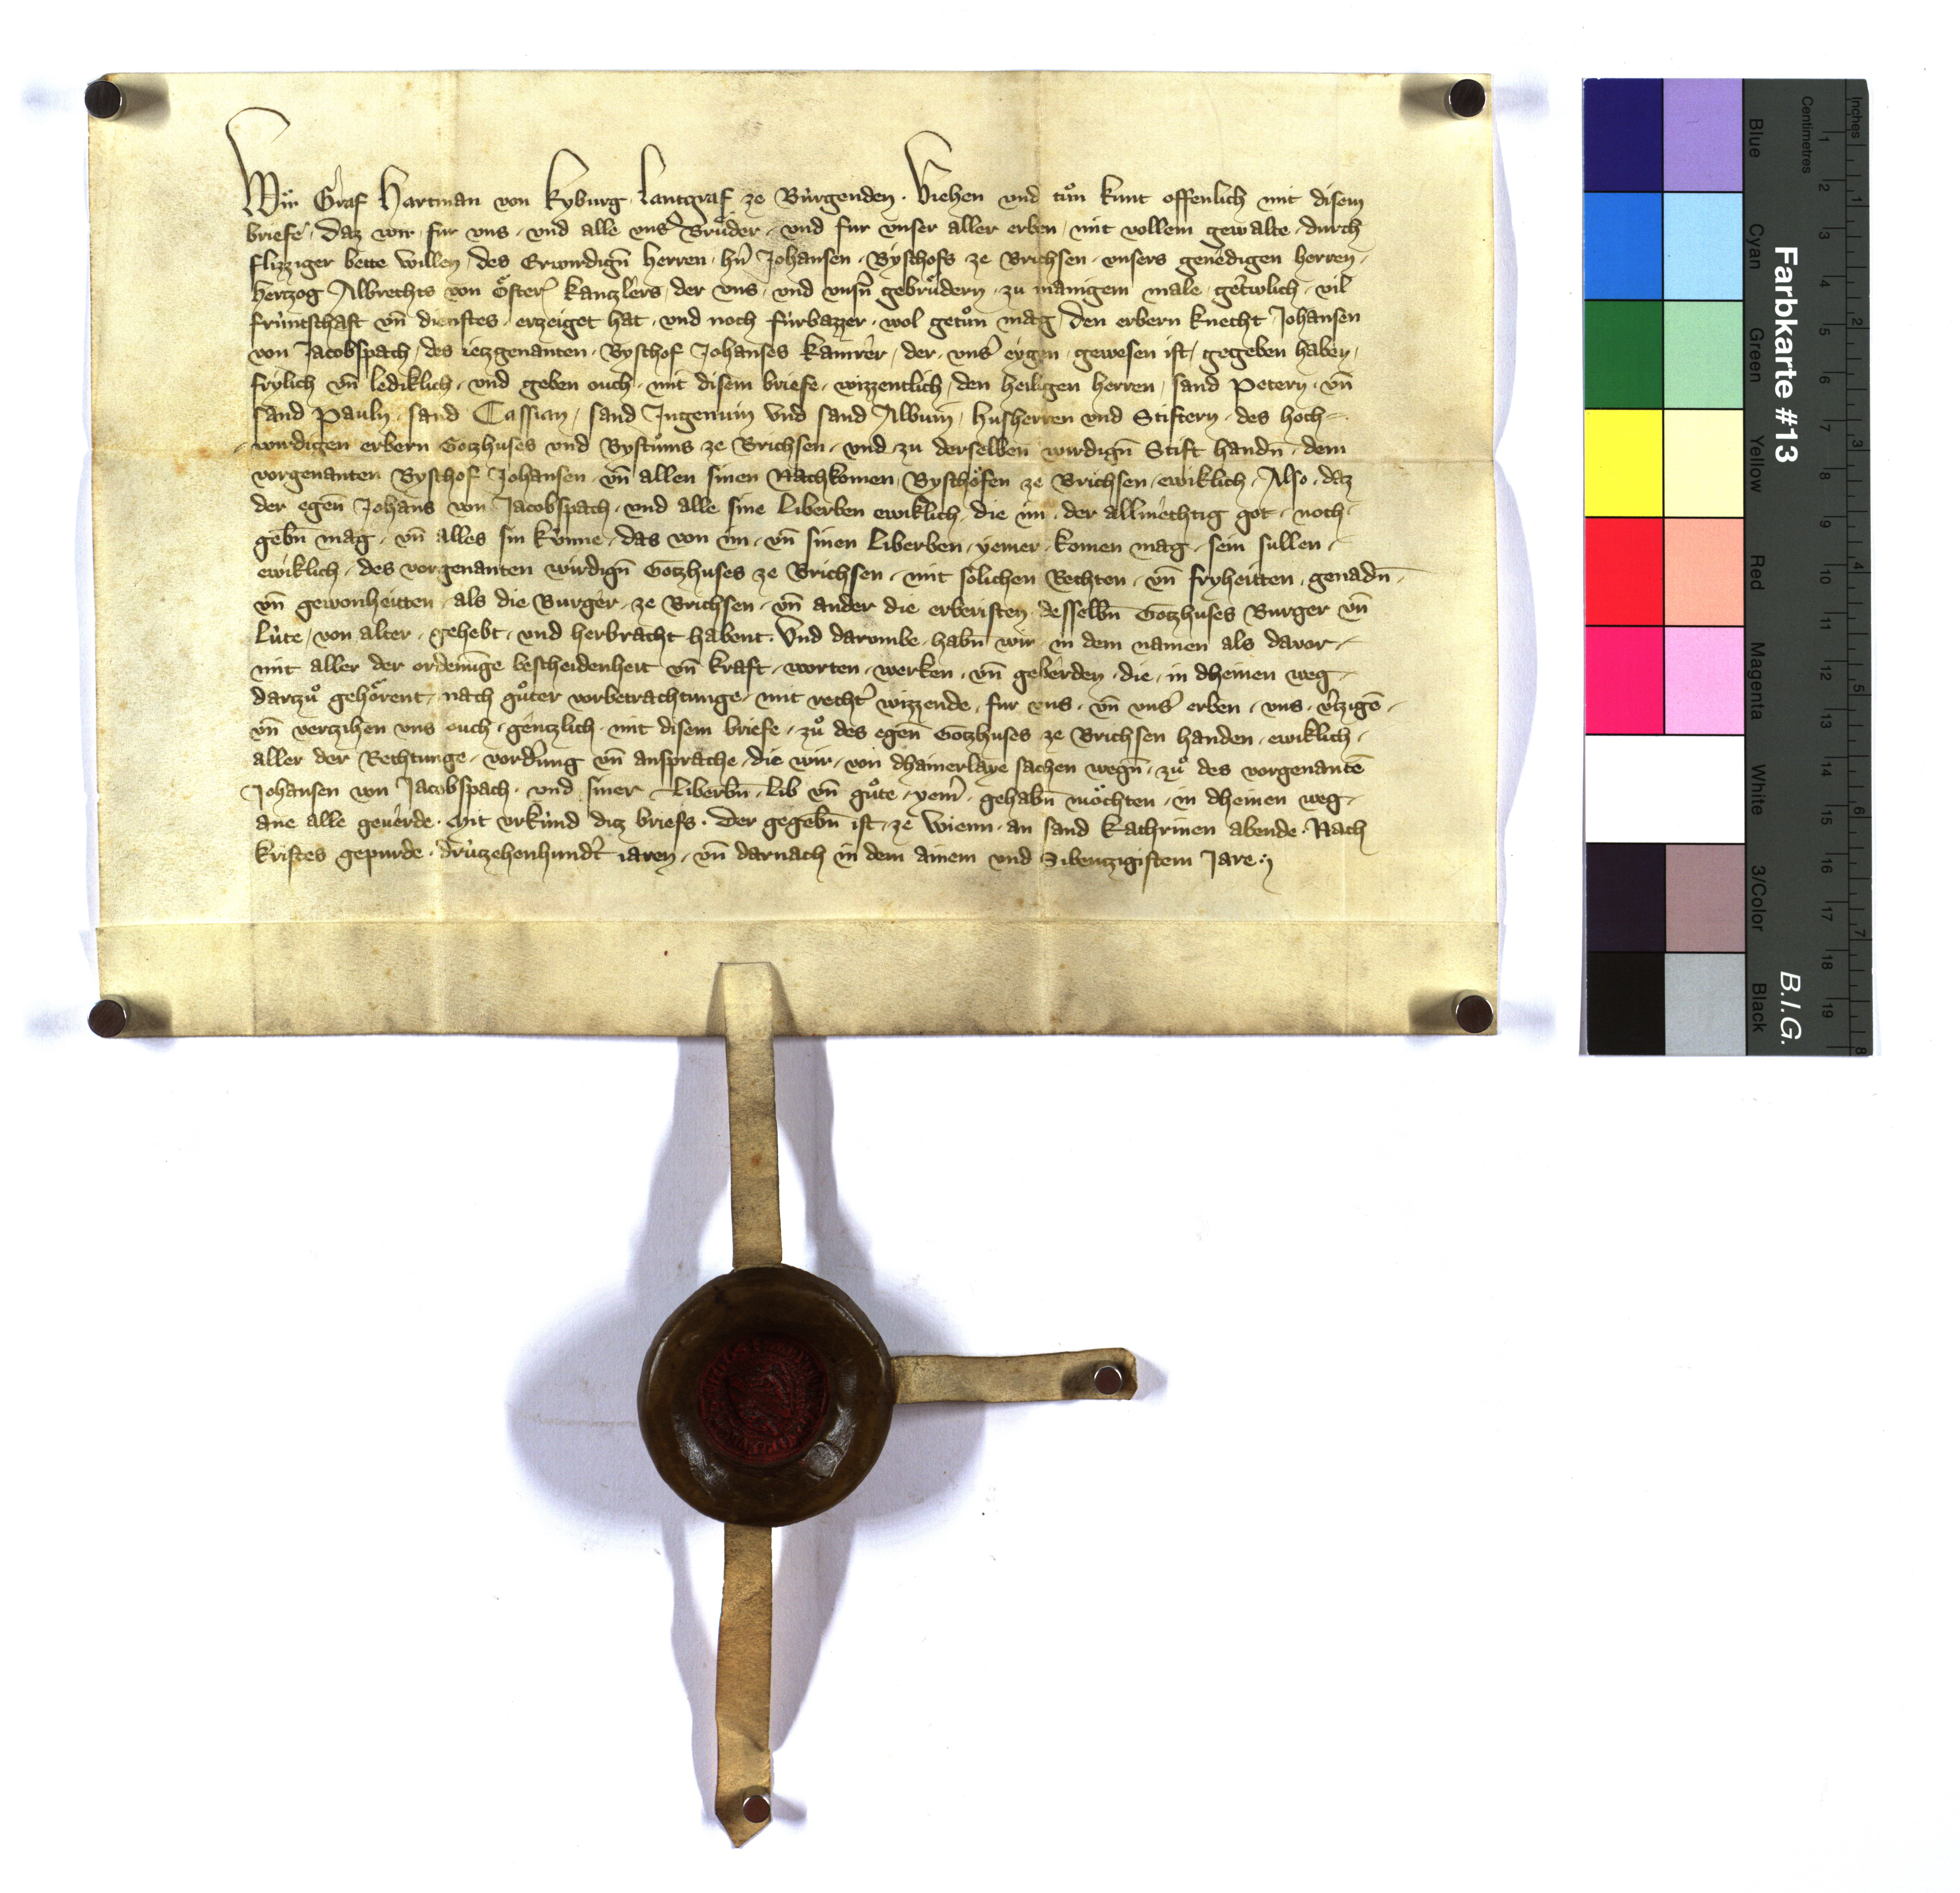 Wir Graf Hartman von Kyburg Lantgraf ze Bu̍rgenden · Viehen vnd tu̍n kunt offenlich mit disem
briefe · Daz wir fur vns · vnd alle vnsˀ Bru̍der · vnd fur vnser aller erben · mit vollem gewalte · durch
flizziger bette willen · des Erwirdign̄ herren · hn̄ Johansen · Byschofs ze Brichsen · vnsers genedigen herren ·
Hertzog Albrechts von Ȯsterˀ kanzlers · der vns · vnd vnsn̄ gebru̍dern · zu manigem male · getrwlich · vil
fru̍ntschaft vn̄ dienstes · erzeiget hat · vnd noch fu̍rbazzer · wol getu̍n mag · Den erbern knecht Johansen
von Jacobspach · des ietzgenanten · Byschof Johanses kamrer · der · vnsˀ eygen · gewesen ist · gegeben haben ·
frylich vn̄ lediklich · vnd geben ouch · mit disem briefe · wizzentlich · den heiligen herren · sand Petern · vn̄
sand Pauln · sand Cassian · sand Ingenuin Vnd sand Albuin · husherren vnd Stiftern · des hoch-
wirdigen erbern Gotzhuses vnd Bystu̍ms ze Brichsen · vnd zu derselben wirdign̄ Stift handn̄ · dem
vorgenanten Byschof Johansen · vn̄ allen sinen Nachkomen Byschȯfen ze Brichsen · ewiklich · Also · daz
der egen̄ Johans von Jacobspach · vnd alle sine Liberben ewiklich · die im · der allmechtig got · noch
gebn̄ mag · vn̄ alles sin ku̍nne · das von im · vn̄ sinen Liberben · yemer · komen mag · sein sullen ·
ewiklich · des vorgenanten wirdign̄ Gotzhuses ze Brichsen · mit solichen Rechten · vn̄ fryheitten · genadn̄ ·
vn̄ gewonheitten · als die Burger · ze Brichsen · vn̄ ander die erberisten · desselbn̄ Gotzhuses Burger vn̄
Lu̍te · von alter · gehebt · vnd herbracht habent · Vnd darumbe · habn̄ wir · in dem namen als davor ·
mit aller der ordenu̍nge bescheidenheit vn̄ kraft · worten · werken · vn̄ geberden · die · in dheinen weg ·
darzu̍ gehȯrent · nach gu̍ter vorbetrachtunge · mit rechtˀ wizzende · fur vns · vn̄ vnsˀ erben · vns · vˀzigē ·
vn̄ verzihen vns ouch · gentzlich · mit disem briefe · zu̍ des egen̄ Gotzhuses ze Brichsen handen · ewiklich ·
aller der Rechtunge · vordrung vn̄ ansprache · die wir · von dhainerlaye sachen wegn̄ · zu̍ des vorgenantē
Johansen von Jacobspach · vnd siner Liberbn̄ · lib vn̄ gu̍te · yemˀ · gehabn̄ mȯchten · in dheinen weg ·
ane alle geuerde · Mit vrku̍nd ditz briefs · Der gegebn̄ ist · ze Wienn · an sand Kathrinen abende · Nach
Kristes gepurde · dru̍tzehenhundˀt iaren · vn̄ darnach in dem ainem vnd Sibentzigistem Jare ·
Farbkarte #13
B.I.G.
Blue
Cyan
Green
Yellow
Red
Magenta
White
3/Color
Black
Inches
Centimetres
1 2 3 4 5 6 7 8 9 10 11 12 13 14 15 16 17 18 19
1 2 3 4 5 6 7 8